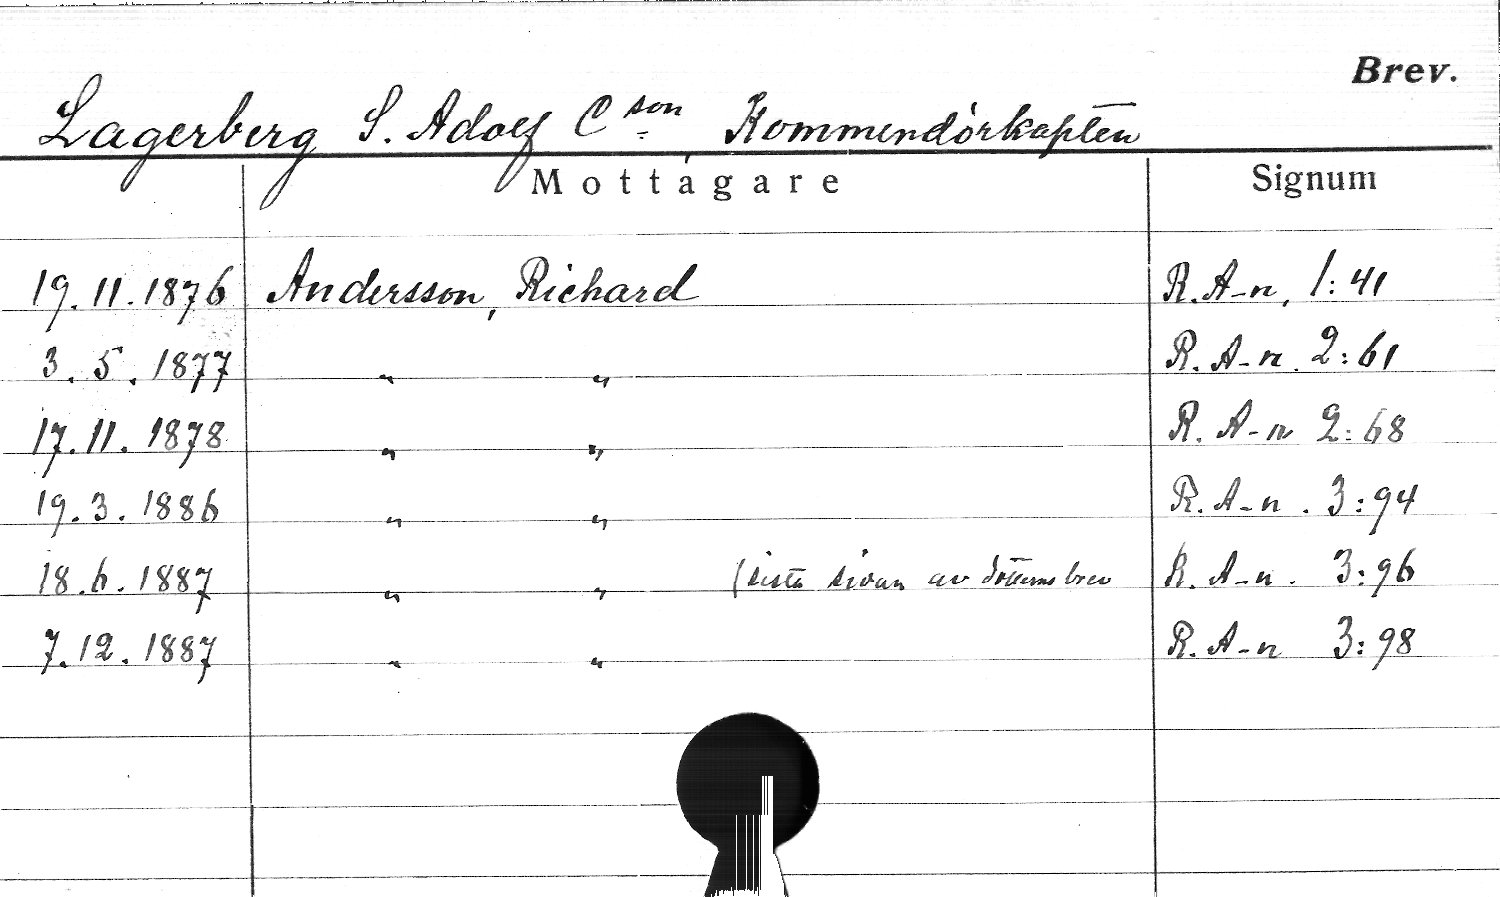 Brev.
Lagerberg S. Adolf C son, Kommendörkapten
Mottagare Signum
19.11.1876 Andersson, Richard R. A-n, 1:41
3.5.1877 " " R. A-n. 2:61
17.11.1878 " " R. A-n 2:68
19.3.1886 " " R. A-n. 3:94
18.6.1887 " " (sista sidan av dotterns brev R. A-n. 3:96
7.12.1887 " " R. A-n 3:98